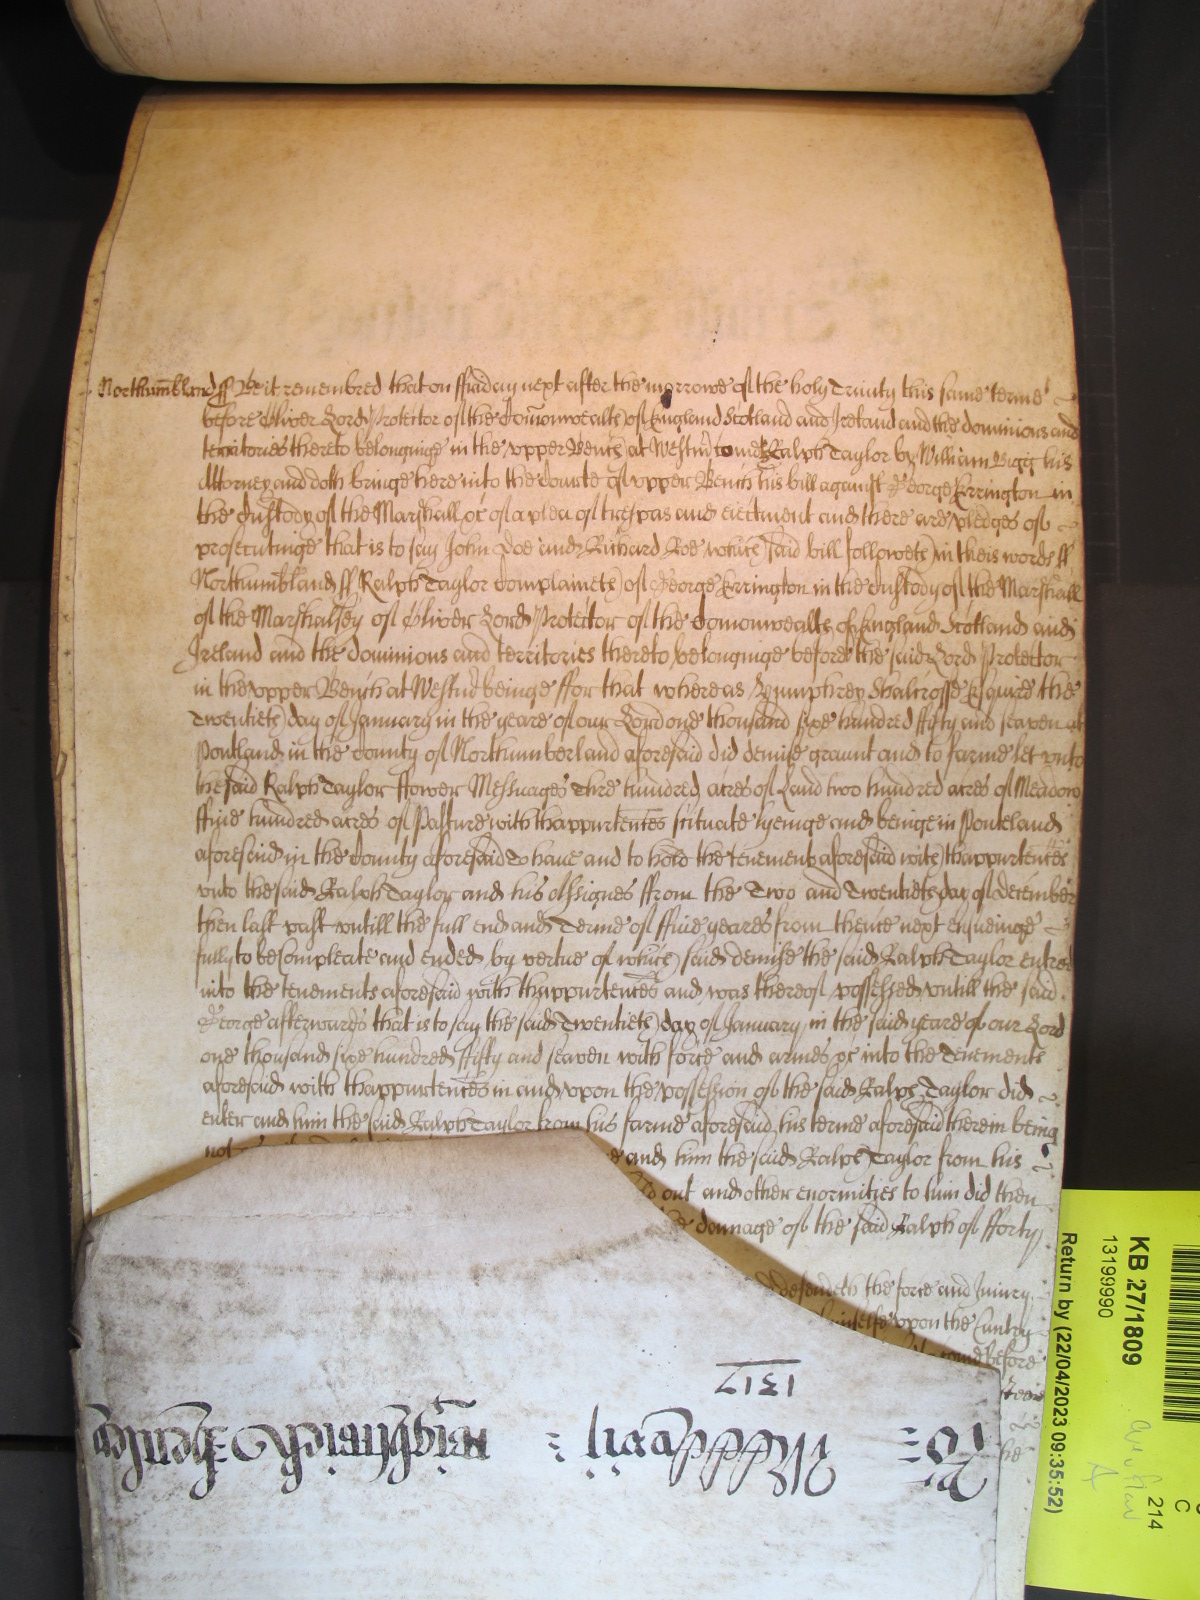 Northumbland ss Be it remembred that on ffriday next after the morrowe of the holy Trinity this same terme
before Oliver Lord Protector of the Comonwealth of England Scotland and Ireland and the dominions and
territories thereto belonginge in the upper Bench at Westmr came Ralph Taylor by William Bigg his
Attorney and doth bringe here into the Courte of upper Bench his bill against George Errington in
the Custody of the Marshall &c of a plea of trespas and eiectment and there are pledges of
prosecutinge that is to say John Doe and Richard Roe which said bill followeth in theis words ss
Northumbland ss Ralph Taylor Complaineth of George Errington in the Custody of the Marshall
of the Marshalsey of Oliver Lord Protector of the Comonwealth of England Scotland and
Ireland and the dominions and territories thereto belonginge before the said Lord Protector
in the upper Bench at Westmr beinge ffor that whereas Humphrey Shalcrosse Esquire the
Twentieth day of January in the yeare of our Lord one thousand sixe hundred fifty and seaven at
Pontland in the County of Northumberland aforesaid did demise graunt and to farme let unto
the said Ralph Taylor ffower Messuages Thre hundred acres of Land two hundred acres of Meadow
ffive hundred acres of Pasture with thappurtences scituate lyeinge and beinge in Ponteland
aforesaid in the County aforesaid To have and to hold the tenements aforesaid with thappurtences
unto the said Ralph Taylor and his Assignes ffrom the Two and Twentieth day of December
then last past untill the full end and Terme of ffive yeares from thence next ensueinge
fully to be Compleate and ended by vertue of which said demise the said Ralph Taylor entred
into the tenements aforesaid with thappurtences and was thereof possessed untill the said
George afterwards that is to say the said Twentieth day of January in the said yeare of our Lord
one thousand sixe hundred ffifty and seaven with force and armes &c into the Tenements
aforesaid with thappurtences in and upon the possession of the said Ralph Taylor did
enter and him the said Ralph Taylor from his farme aforesaid his terme aforesaid therein being
not and him the said Ralph Taylor from his
out and other enormities to him did then
damage of the said Ralph of fforty
defendeth the force and Iniury
himselfe upon the Cuntry
come before
the
1317
KB 27/1809
13199990
Return by (22/04/2023 09:35:52)
214
C